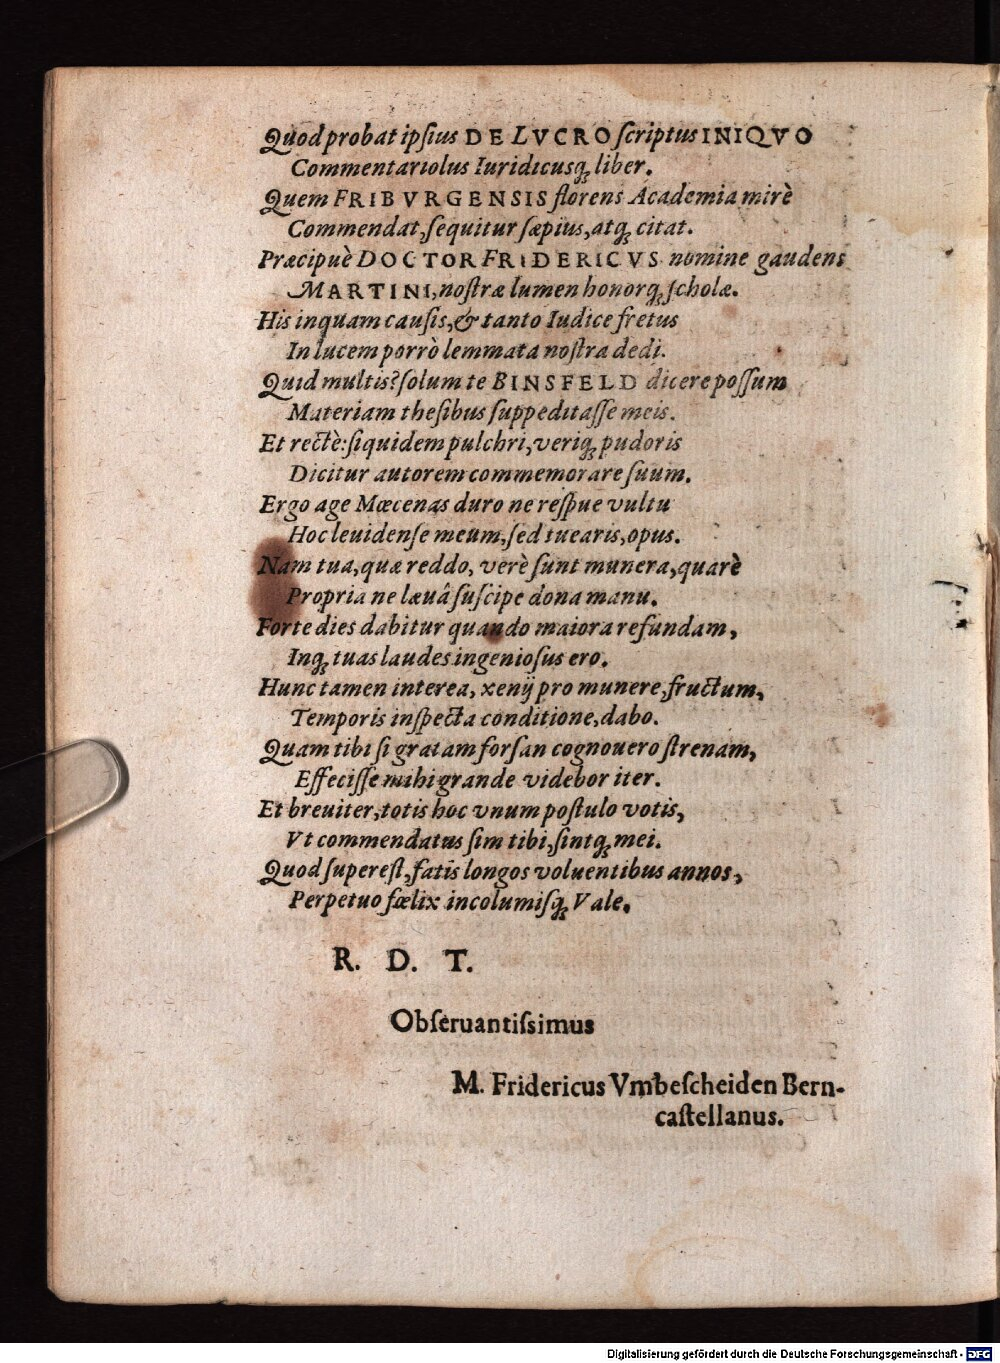 Quod probat ipſius DE LVCRO ſcriptus INIQVO
Commentariolus Iuridicusq; liber.
Quem FRIBVRGENSIS florens Academia mirè
Commendat, ſequitur ſæpius, atq; citat.
Præcipuè DOCTOR FRIDERICVS nomine gaudens
MARTINI, noſtræ lumen honorq; ſcholæ.
His inquam cauſis, & tanto Iudice fretus
In lucem porrò lemmata noſtra dedi.
Quid multis? ſolum te BINSFELD dicere poſſum
Materiam theſibus ſuppeditaſſe meis.
Et rectè: ſiquidem pulchri, veriq; pudoris
Dicitur autorem commemorare ſuum.
Ergo age Mœcenas duro ne reſpue vultu
Hoc leuidenſe meum, ſed tuearis, opus.
Nam tua, quæ reddo, verè ſunt munera, quarè
Propria ne læuâ ſuſcipe dona manu.
Forte dies dabitur quando maiora refundam,
Inq; tuas laudes ingenioſus ero.
Hunc tamen interea, xenij pro munere, fructum,
Temporis inſpecta conditione, dabo.
Quam tibi ſi gratam forſan cognouero ſtrenam,
Effeciſſe mihi grande videbor iter.
Et breuiter, totis hoc vnum poſtulo votis,
Vt commendatus ſim tibi, ſintq; mei.
Quod ſupereſt, fatis longos voluentibus annos,
Perpetuo fœlix incolumiſq; Vale.
R. D. T.
Obſeruantiſsimus
M. Fridericus Vmbeſcheiden Bern-
caſtellanus.
Digitalisierung gefördert durch die Deutsche Forschungsgemeinschaft - DFG